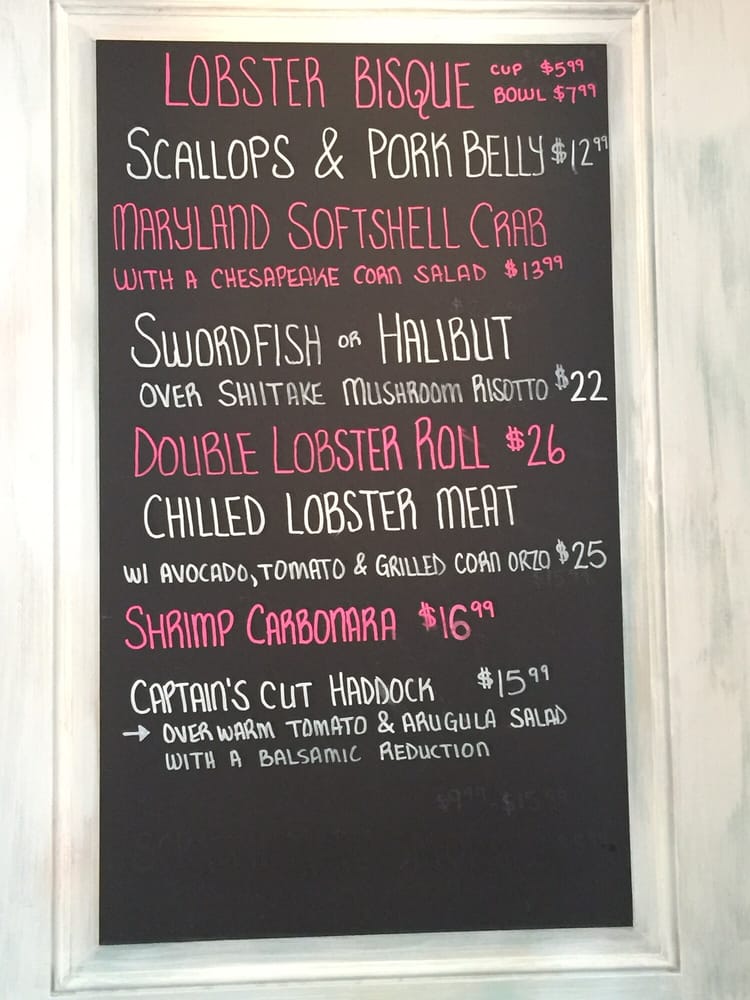 LOBSTER BISQUE CUP $5.99
BOWL $7.99
SCALLOPS & PORK BELLY $12.99
MARYLAND SOFTSHELL CRAB
WITH A CHESAPEAKE CORN SALAD $13.99
SWORDFISH OR HALIBUT
OVER SHIITAKE MUSHROOM RISOTTO $22
DOUBLE LOBSTER ROLL $26
CHILLED LOBSTER MEAT
W/ AVOCADO, TOMATO & GRILLED CORN ORZO $25
SHRIMP CARBONARA $16.99
CAPTAIN'S CUT HADDOCK $15.99
→ OVER WARM TOMATO & ARUGULA SALAD
WITH A BALSAMIC REDUCTION